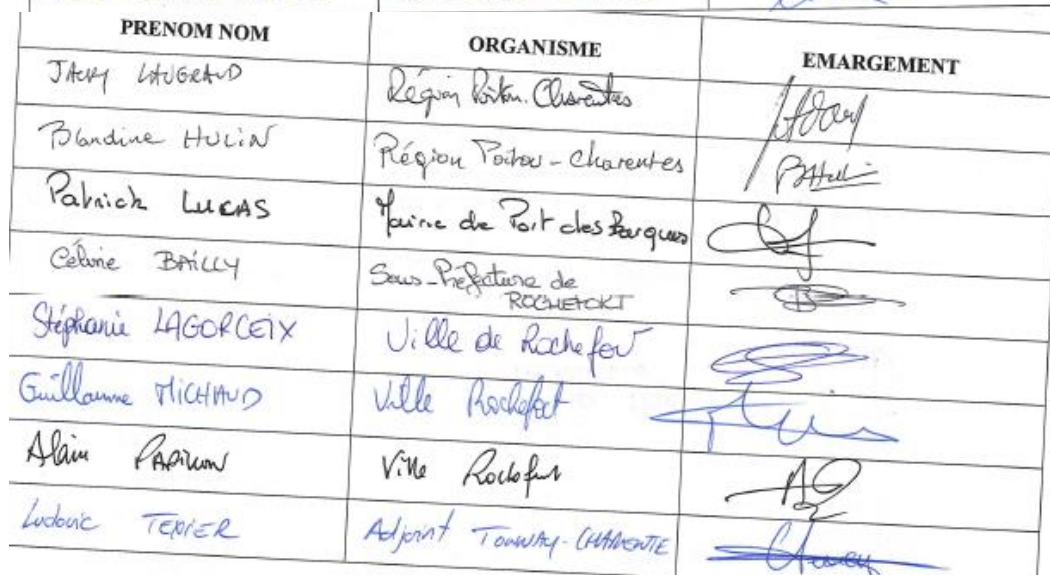 PRENOM NOM ORGANISME EMARGEMENT
JACKY LAUGRAUD Région Poitou-Charentes
Blandine HULIN Région Poitou-Charentes BHulin
Patrick LUCAS Mairie de Port des Barques
Céline BAILLY Sous-Préfecture de
ROCHEFORT
Stéphanie LAGORCEIX Ville de Rochefort
Guillaume MICHAUD Ville Rochefort
Alain PAPILLON Ville Rochefort
Ludovic TEXIER Adjoint TONNAY-CHARENTE